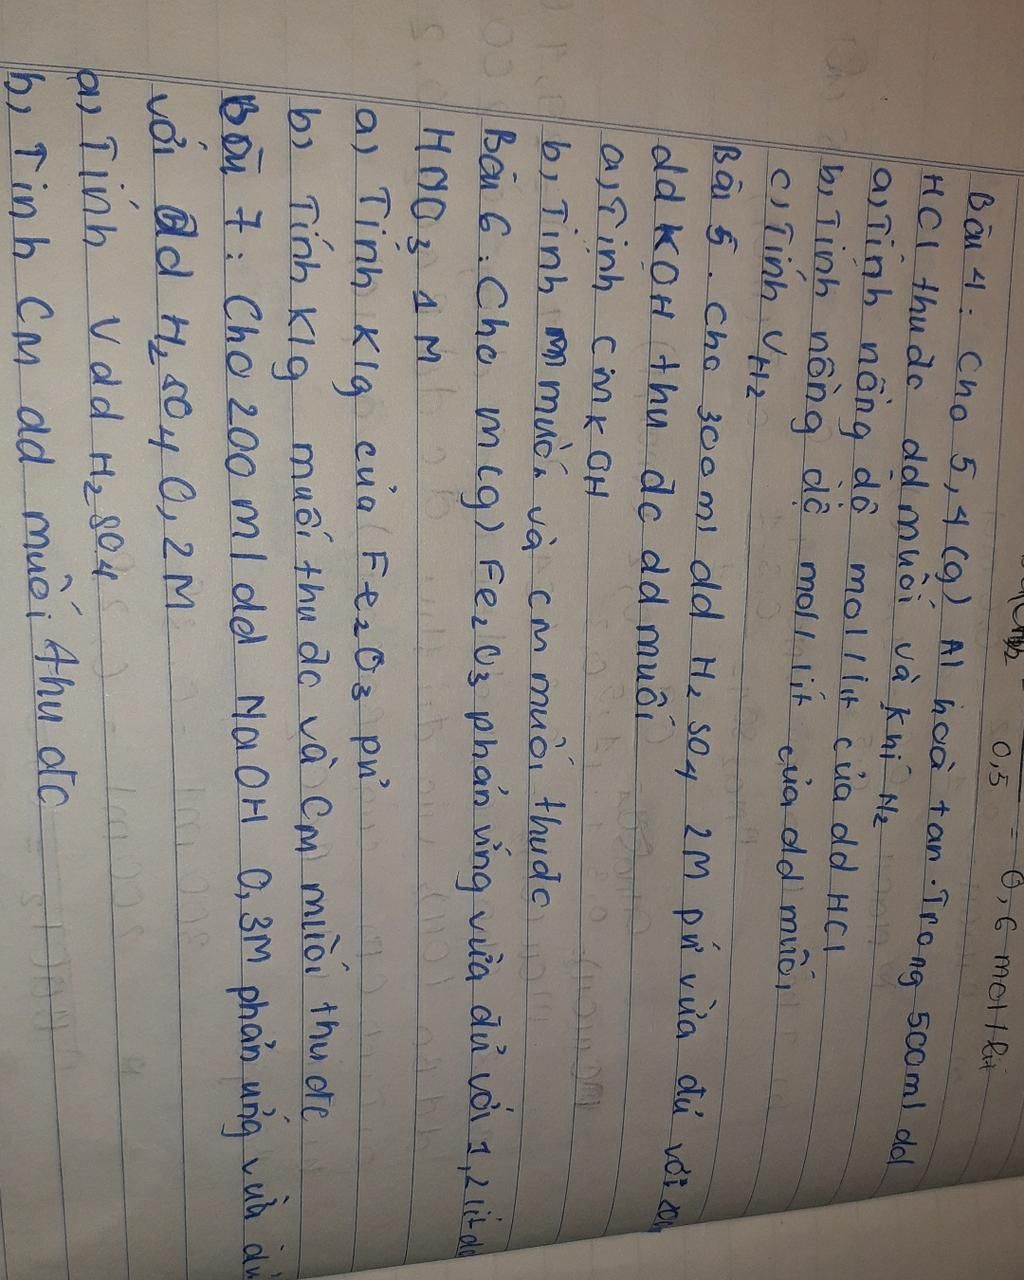 0,5 = 0,6 mol/lit
Bài 4: Cho 5,4 (g) Al hoà tan. Trong 500ml dd
HCl thu đc dd muối và khí H2
a, Tính nồng độ mol/lit của dd HCl
b, Tính nồng độ mol/lit của dd muối
c, Tính VH2
Bài 5. Cho 300ml dd H2SO4 2M pứ vừa đủ với
dd KOH thu đc dd muối
a, Tính CM KOH
b, Tính m muối và CM muối thu đc
Bài 6: Cho m(g) Fe2O3 phản ứng vừa đủ với 1,2 lit dd
HNO3 1M
a) Tính Klg của Fe2O3 pứ
b) Tính Klg muối thu đc và CM muối thu đc
Bài 7: Cho 200 ml dd NaOH 0,3M phản ứng vừa đủ
với dd H2SO4 0,2M
a, Tính Vdd H2SO4
b, Tính CM dd muối thu đc